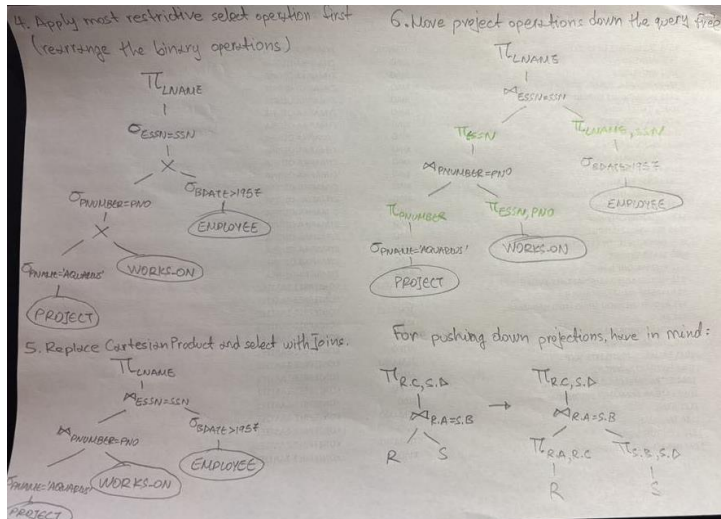 4. Apply most restrictive select operation first
(rearrange the binary operations)
π LNAME
σ ESSN=SSN
×
σ PNUMBER=PNO
σ BDATE>1957
EMPLOYEE
×
σ PNAME='AQUARIUS'
WORKS-ON
PROJECT
5. Replace Cartesian Product and select with Joins.
π LNAME
⋈ ESSN=SSN
⋈ PNUMBER=PNO
σ BDATE>1957
EMPLOYEE
σ PNAME='AQUARIUS'
WORKS-ON
PROJECT
6. Move project operations down the query tree
π LNAME
⋈ ESSN=SSN
π ESSN
π LNAME, SSN
⋈ PNUMBER=PNO
σ BDATE>1957
EMPLOYEE
π PNUMBER
π ESSN, PNO
σ PNAME='AQUARIUS'
WORKS-ON
PROJECT
For pushing down projections, have in mind:
π R.C, S.D → π R.C, S.D
⋈ R.A=S.B
⋈ R.A=S.B
R S
π R.A, R.C
π S.B, S.D
R S